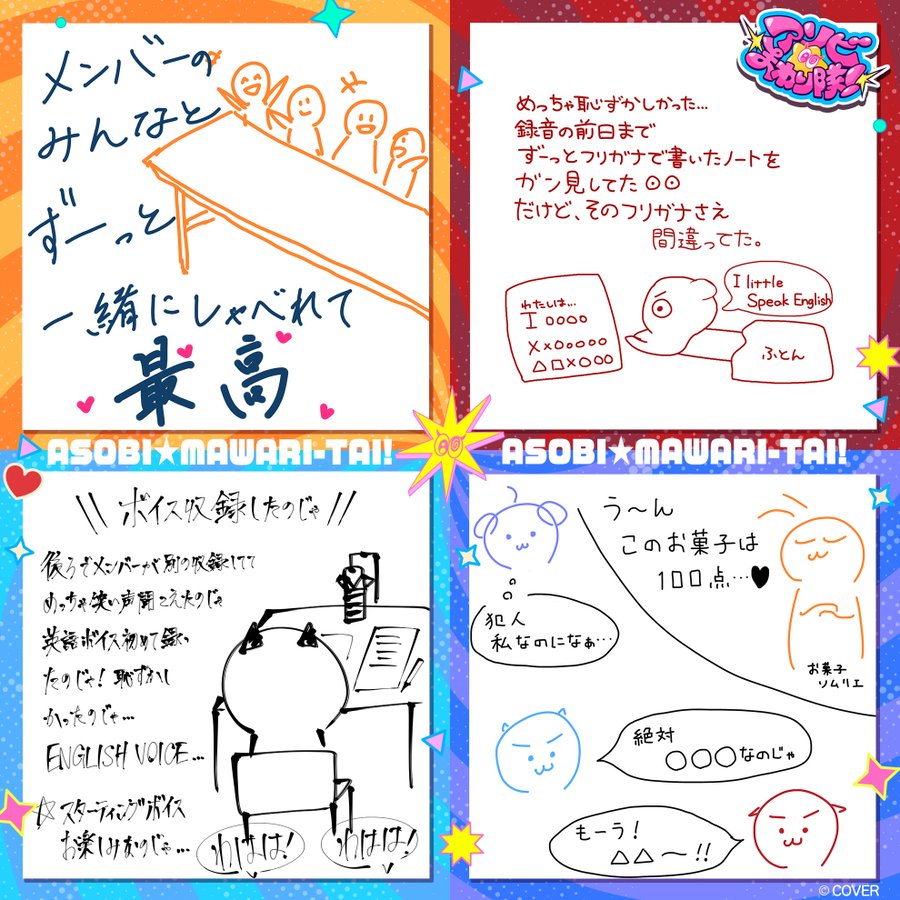 メンバーの
みんなと
ずーっと
一緒にしゃべれて
最高
アソビ
まわり隊!
めっちゃ恥ずかしかった…
録音の前日まで
ずーっとフリガナで書いたノートを
ガン見してた◎◎
だけど、そのフリガナさえ
間違ってた。
わたしは…
I ○○○○
X×○○○○○
△□×○○○
I little
Speak English
ふとん
ASOBI★MAWARI-TAI!
ASOBI★MAWARI-TAI!
\\ボイス収録したのじゃ//
後ろでメンバーが別の収録してて
めっちゃ笑い声聞こえたのじゃ
英語ボイス初めて録っ
たのじゃ!恥ずかし
かったのじゃ…
ENGLISH VOICE…
☆スターティングボイス
お楽しみなのじゃ…
わはは!
わはは!
う〜ん
このお菓子は
100点…♥
お菓子
ソムリエ
犯人
私なのになぁ…
絶対
○○○なのじゃ
もーう!
△△〜!!
© COVER